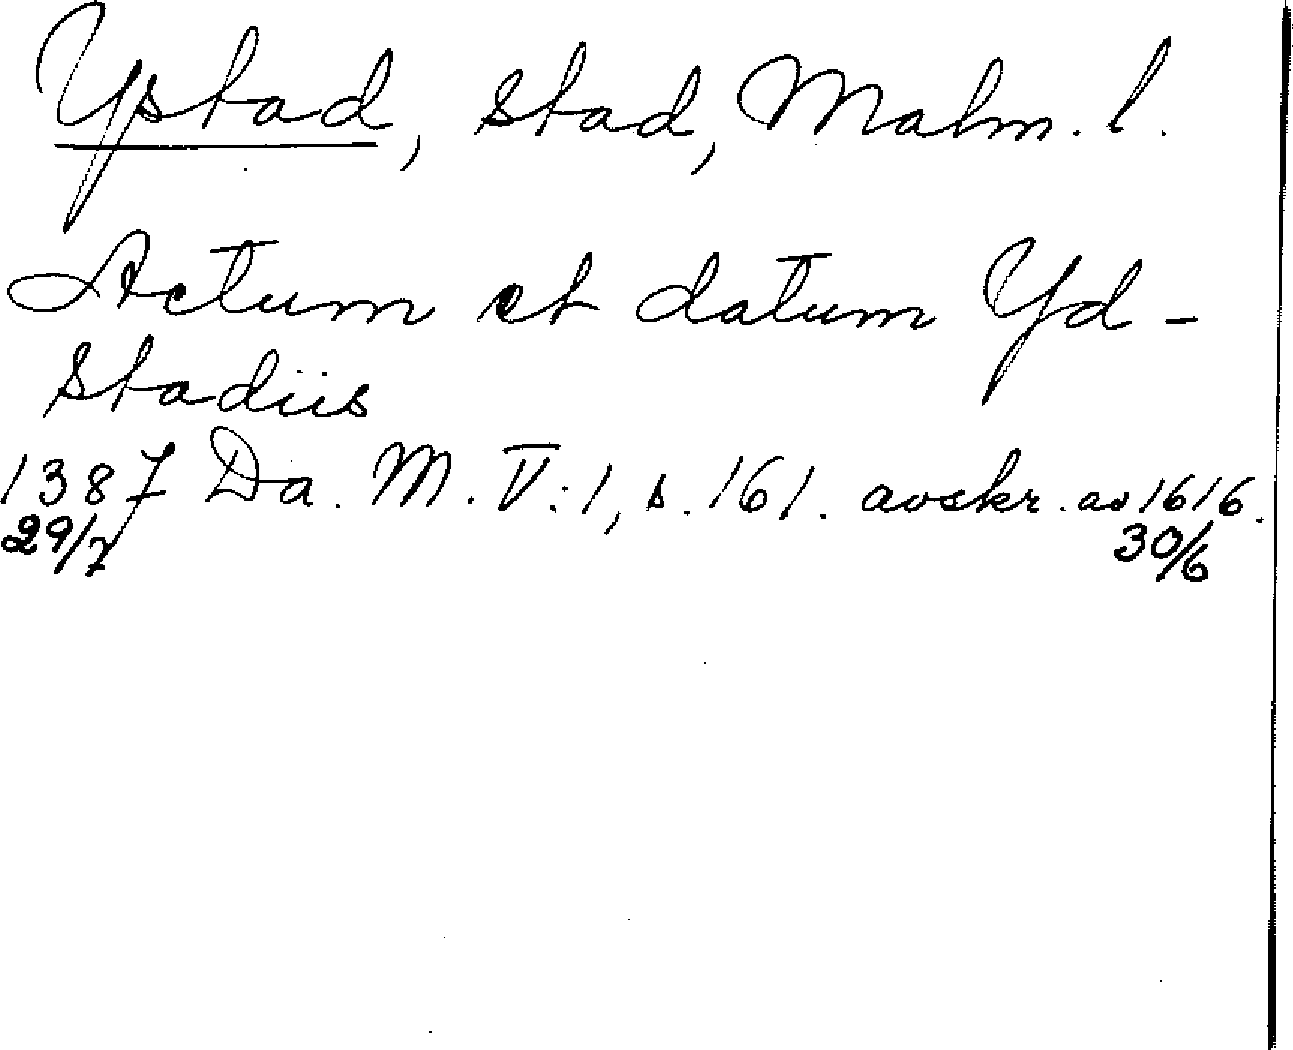 Ystad, stad, Malm. l.
Actum et datum Yd-
stadiis
1387 Da. M. V:1, s. 161. avskr. av 1616.
29/7 30/6